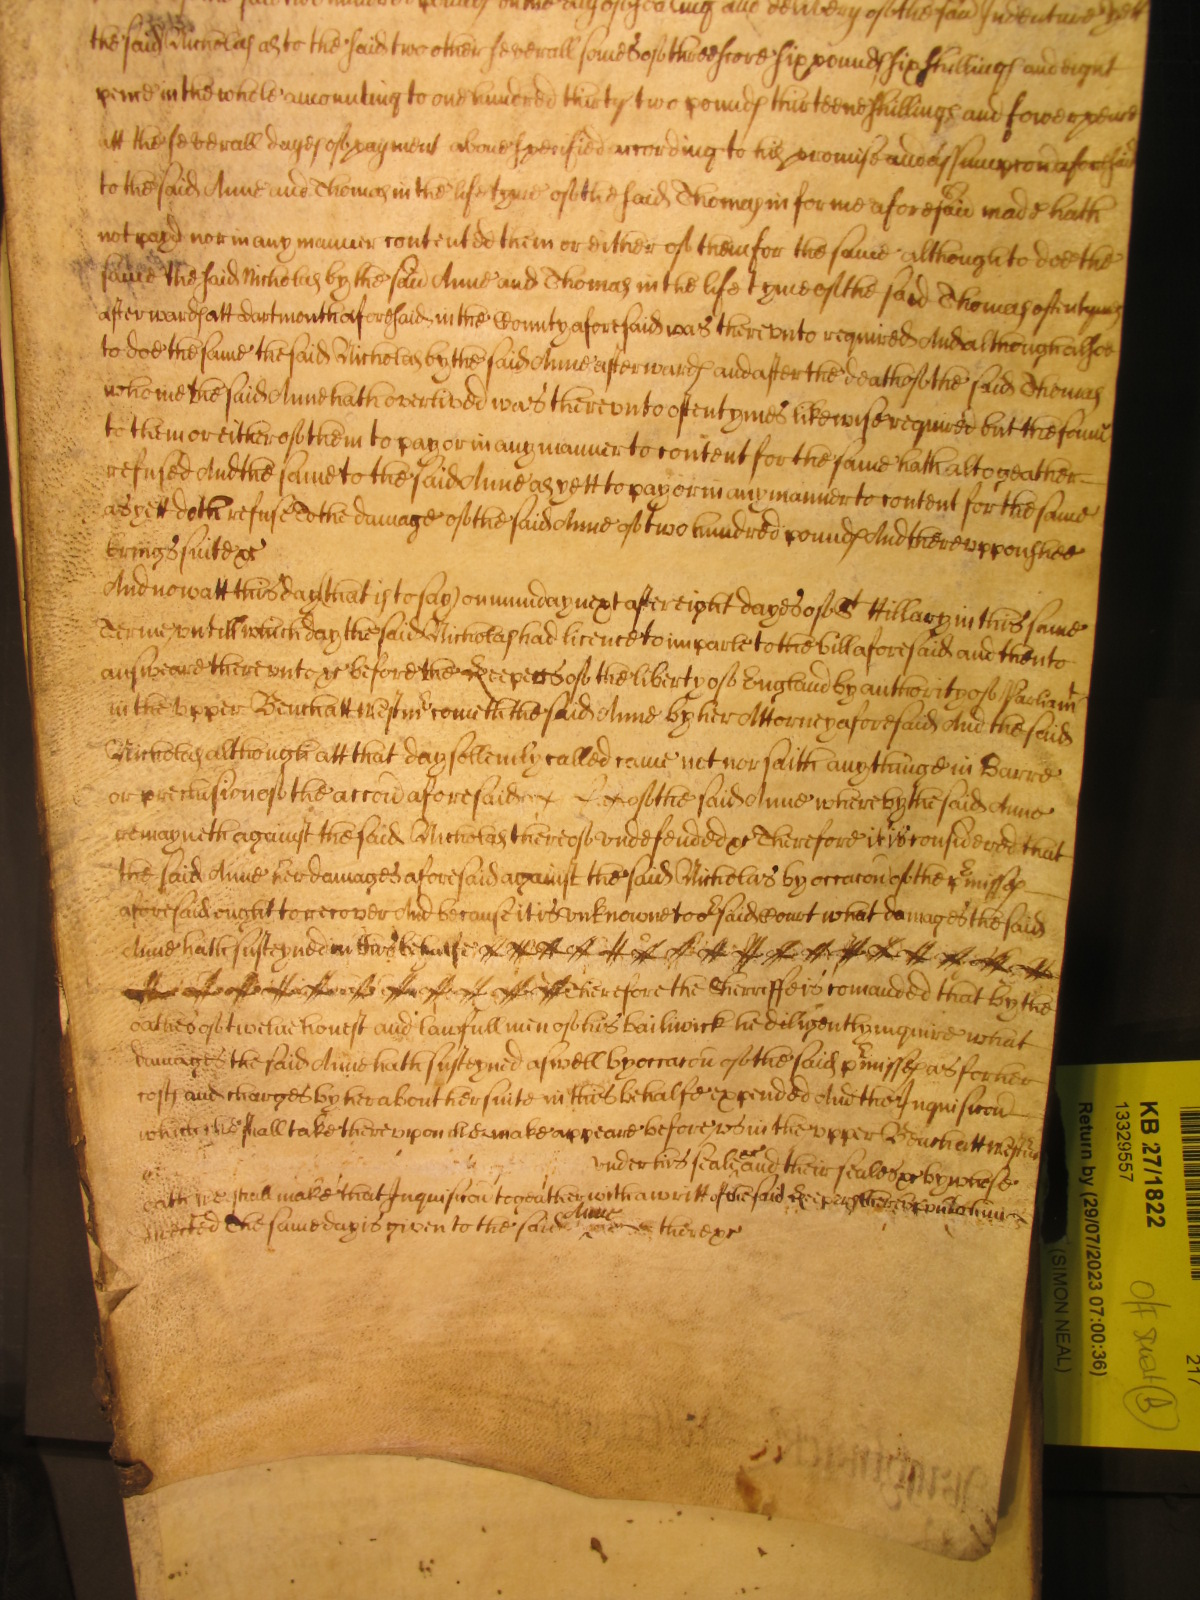 the said two hundred pounds on the day of sealing and delivery of the said Indenture yett
the said Nicholas as to the said two other severall somes of threescore six pounds six shillings and eight
pence in the whole amounting to one hundred thirty two pounds thirteene shillings and fower pence
att the severall dayes of payment above specified according to his promise and assumpcon aforesaid
to the said Anne and Thomas in the life tyme of the said Thomas in forme aforesaid made hath
not payd nor in any manner contented them or either of them for the same although to doe the
same the said Nicholas by the said Anne and Thomas in the life tyme of the said Thomas oftentymes
afterwards att Dartmouth aforesaid in the County aforesaid was therevnto required And although alsoe
to doe the same the said Nicholas by the said Anne afterwards and after the death of the said Thomas
whome the said Anne hath overlived was therevnto oftentymes likewise required but the same
to them or either of them to pay or in any manner to content for the same hath altogeather
refused And the same to the said Anne as yett to pay or in any manner to content for the same
as yett doth refuse To the damage of the said Anne of two hundred pounds And therevppon shee
brings suite &c
And now att this day (that is to say) on munday next after eight dayes of St Hillary in this same
Terme vntill which day the said Nicholas had licence to imparle to the bill aforesaid and then to
answeare therevnto &c before the Keepers of the liberty of England by authority of Parliamt
in the vpper Bench att Westmr cometh the said Anne by her Attorney aforesaid And the said
Nicholas although att that day sollemly called came not nor saith any thinge in Barre
or preclusion of the accon aforesaid of the said Anne whereby the said Anne
remayneth against the said Nicholas thereof vndefended &c Therefore it is considered that
the said Anne her damages aforesaid against the said Nicholas by occacon of the p'misses
aforesaid ought to recover And because it is vnknowne to or said Court what damages the said
Anne hath susteyned in this behalfe
therefore the Sherriffe is comanded that by the
oathes of twelve honest and lawfull men of his bailiwick he diligently inquire what
damages the said Anne hath susteyned aswell by occacon of the said p'misses as for her
costs and charges by her about her suite in this behalfe expended And the Inquisicon
which he shall take therevpon he make appeare before vs in the vpper Bench att Westmr
vnder his seale &c and their seales &c by whose
oath he shall make that Inquisicon togeather with a writt of the said Keepers therevpon to him
directed The same day is given to the said Anne there &c
KB 27/1822
13329557
Return by (29/07/2023 07:00:36)
(SIMON NEAL)
217